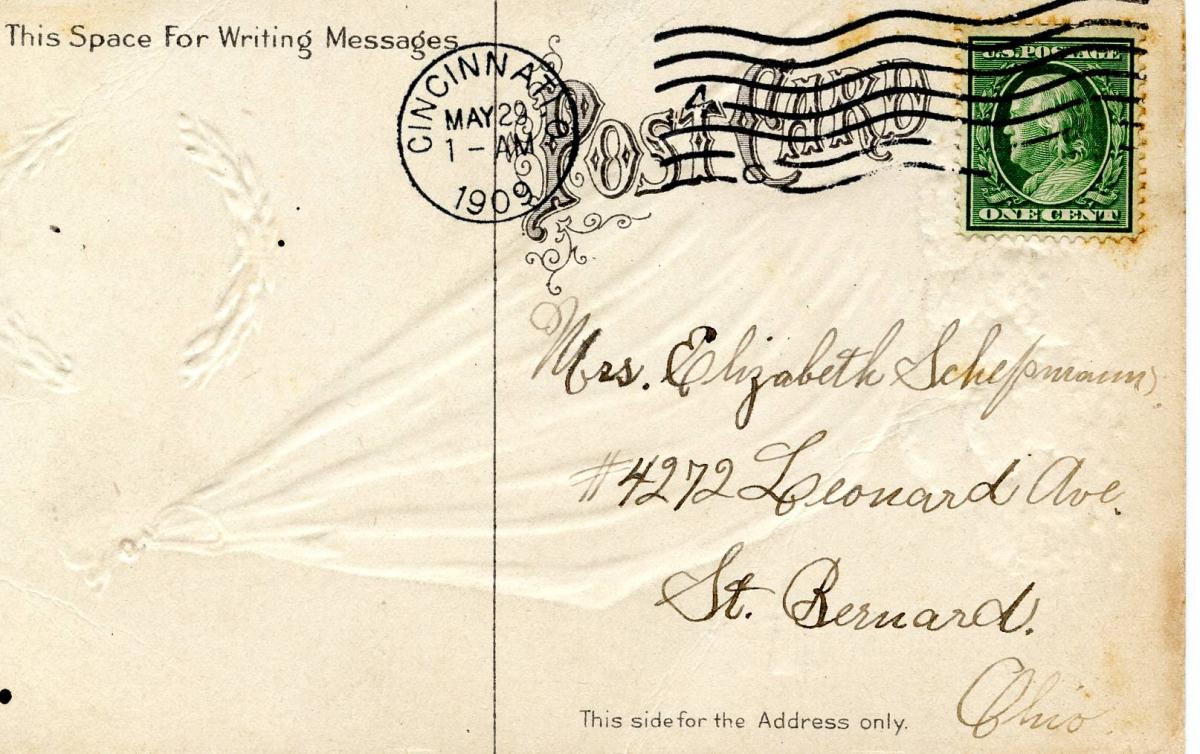 This Space For Writing Messages
CINCINNATI, O.
MAY 29
1 - AM
1909
4
POST CARD
U.S. POSTAGE
ONE CENT
Mrs. Elizabeth Scheppmann
#4272 Leonard Ave.
St. Bernard.
Ohio
This side for the Address only.